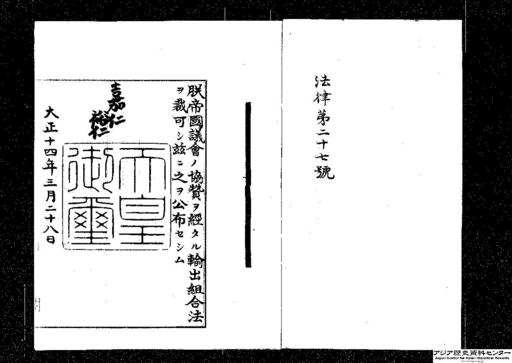 法律第二十七號
朕帝國議會ノ協贊ヲ經タル輸出組合法
ヲ裁可シ茲ニ之ヲ公布セシム
嘉仁
裕仁
天皇
御璽
大正十四年三月二十八日
アジア歴史資料センター
Japan Center for Asian Historical Records